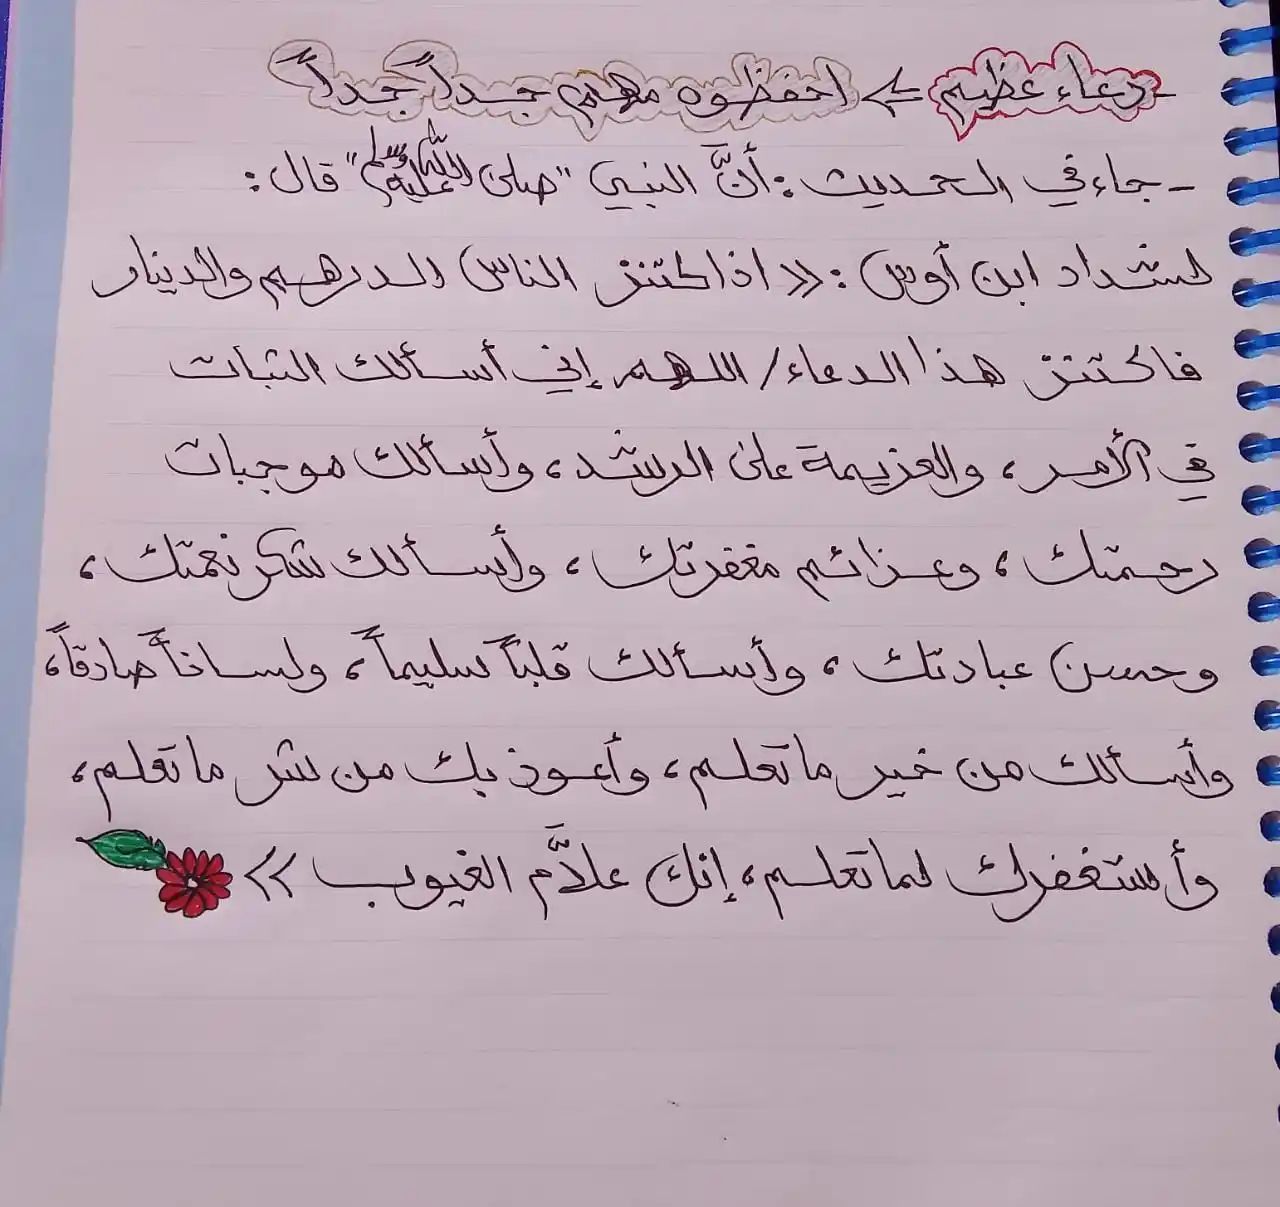 - دعاء عظيم <= احفظوه مهم جداً جداً
- جاء في الحديث : أنَّ النبي "صلى الله عليه وسلم" قال :
لشداد ابن أوس : << اذا كتنز الناس الدرهم والدينار
فاكتنز هذا الدعاء / اللهم إني أسألك الثبات
في الأمر ، والعزيمة على الرشد ، وأسألك موجبات
رحمتك ، وعزائم مغفرتك ، وأسألك شكر نعمتك ،
وحسن عبادتك ، وأسألك قلباً سليماً ، ولساناً صادقاً ،
وأسألك من خير ما تعلم ، وأعوذ بك من شر ما تعلم ،
وأستغفرك لما تعلم ، إنك علاَّم الغيوب >>